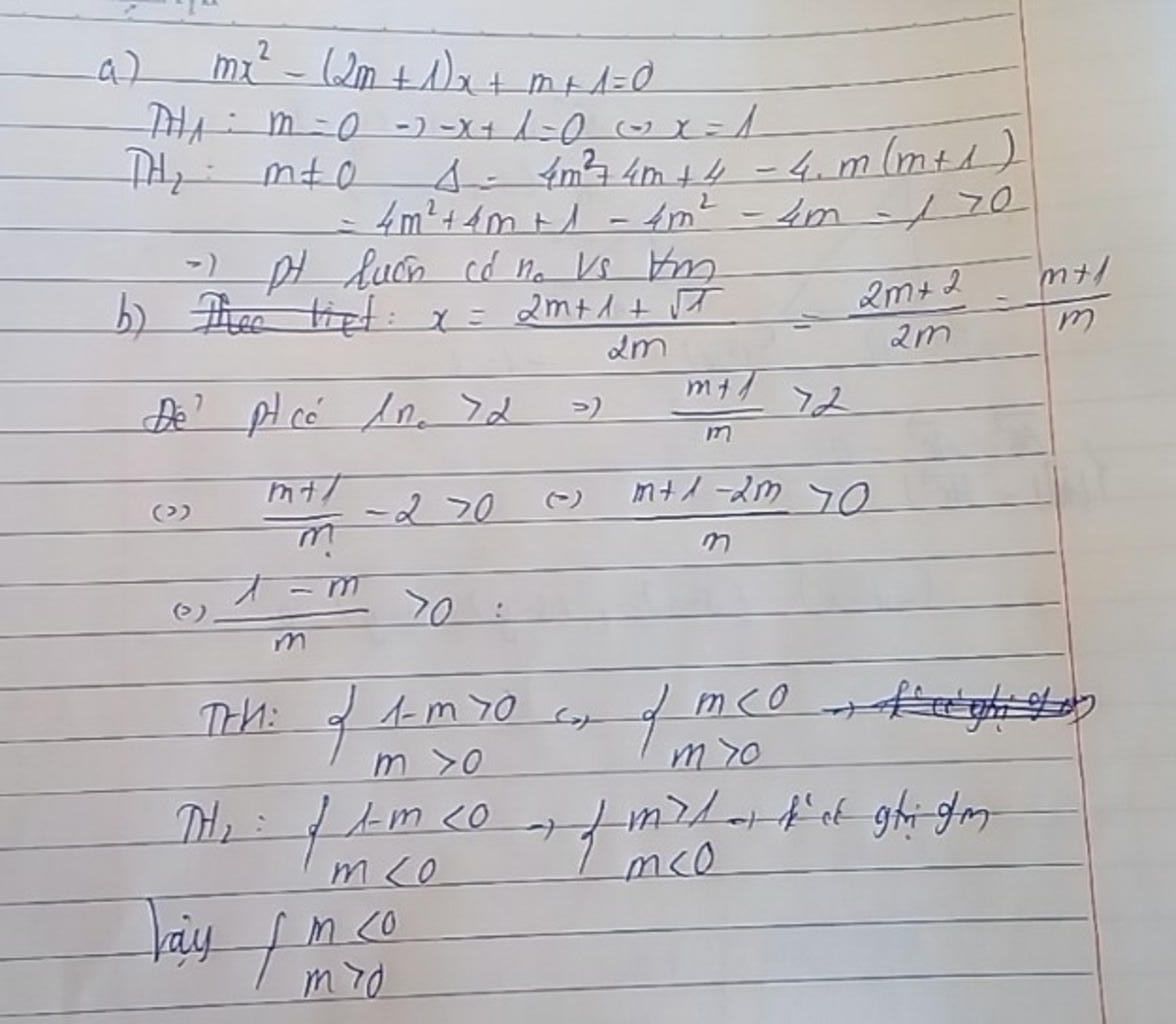 a) mx² - (2m + 1)x + m + 1 = 0
TH1 : m = 0 -> -x + 1 = 0 <-> x = 1
TH2 : m ≠ 0 Δ = 4m² + 4m + 4 - 4. m (m + 1)
= 4m² + 4m + 1 - 4m² - 4m - 1 > 0
=> pt luôn có n₀ vs ∀m
b) Theo viet : x = (2m + 1 + √1)/2m = (2m + 2)/2m = (m + 1)/m
Để pt có 1 n₀ > 2 => (m + 1)/m > 2
<=> (m + 1)/m - 2 > 0 <=> (m + 1 - 2m)/m > 0
<=> (1 - m)/m > 0 :
TH1: { 1 - m > 0 <=> { m < 0 ->
m > 0 m > 0
TH2 : { 1 - m < 0 -> { m > 1 -> k có gtrị gm
m < 0 m < 0
Vậy { m < 0
m > 0